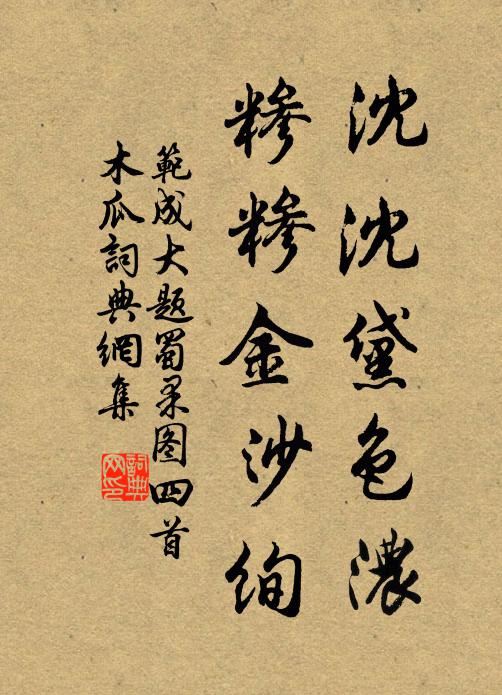 沈沈黛色濃
糝糝金沙絢
範成大題蜀果图四首
木瓜詞典網集
詞典
网印